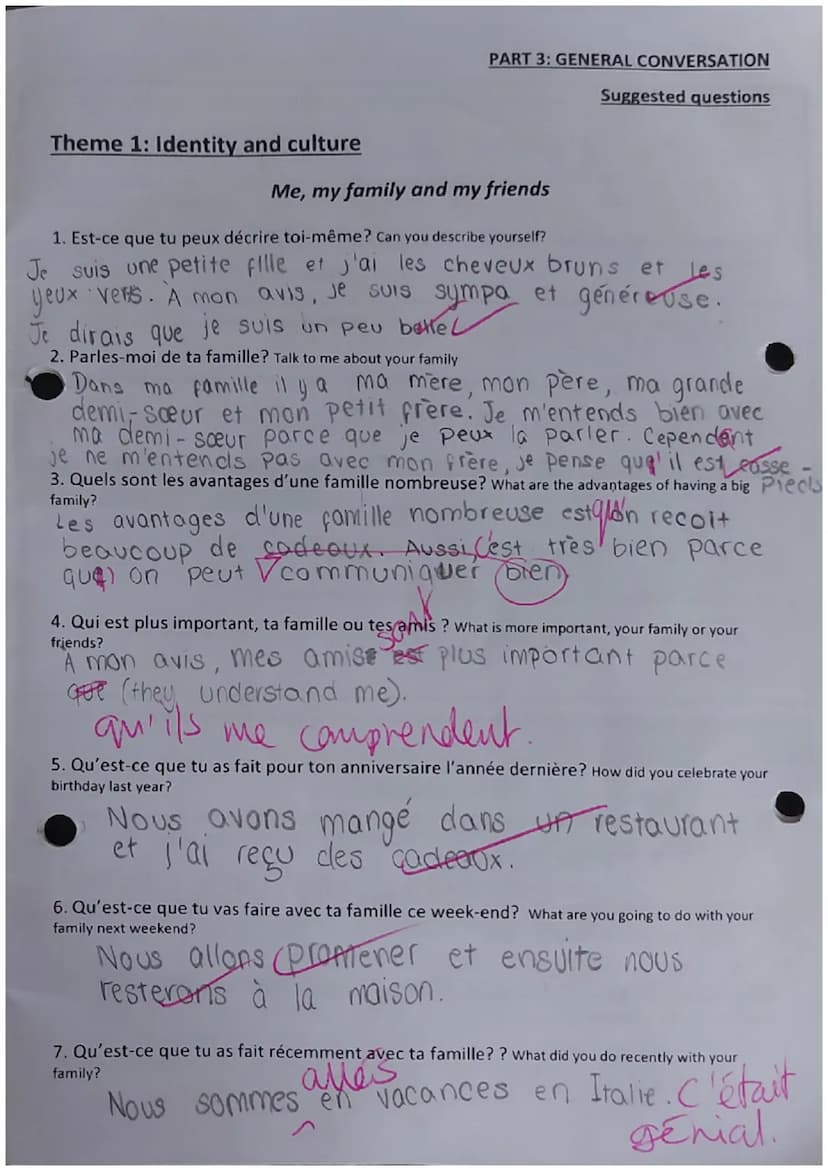 PART 3: GENERAL CONVERSATION
Suggested questions
Theme 1: Identity and culture
Me, my family and my friends
1. Est-ce que tu peux décrire toi-même? Can you describe yourself?
Je suis une petite fille et j'ai les cheveux bruns et les
yeux verts. À mon avis, je suis sympa et généreuse.
Je dirais que je suis un peu belle
2. Parles-moi de ta famille? Talk to me about your family
Dans ma famille il y a ma mère, mon père, ma grande
demi-sœur et mon petit frère. Je m'entends bien avec
ma demi-sœur parce que je peux la parler. Cependant
je ne m'entends pas avec mon frère, je pense qu'il est casse-
pieds
3. Quels sont les avantages d'une famille nombreuse? What are the advantages of having a big
family?
Les avantages d'une famille nombreuse est qu'on recoit
beaucoup de cadeaux. Aussi c'est très bien parce
qu' on peut communiquer bien
4. Qui est plus important, ta famille ou tes amis ? What is more important, your family or your
friends?
sont
A mon avis, mes amise est plus important parce
que (they understand me).
qu'ils me comprendent.
5. Qu'est-ce que tu as fait pour ton anniversaire l'année dernière? How did you celebrate your
birthday last year?
Nous avons mangé dans un restaurant
et j'ai reçu des cadeaux.
6. Qu'est-ce que tu vas faire avec ta famille ce week-end? What are you going to do with your
family next weekend?
Nous allons promener et ensuite nous
resterons à la maison.
7. Qu'est-ce que tu as fait récemment avec ta famille? ? What did you do recently with your
family?
allés
Nous sommes en vacances en Italie. C'était
génial.